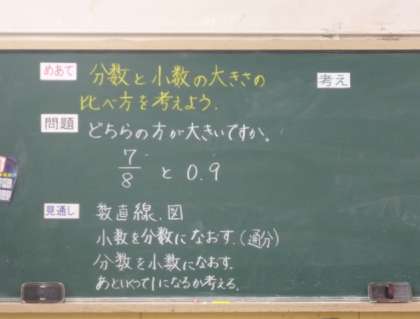 めあて 分数と小数の大きさの
比べ方を考えよう.
考え
問題 どちらの方が大きいですか。
7/8 と 0.9
見通し 数直線.図
小数を分数になおす.(通分)
分数を小数になおす.
あといくつで1になるか考える.